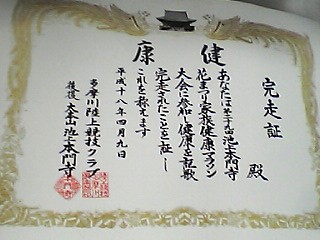 完走証
殿
健康
あなたは池上本門寺
花まつり家族健康マラソン
大会に参加し健康を歌
完走されたことを証し
これを称えます
平成十八年四月九日
多摩川陸上競技クラブ
後援 大本山池上本門寺